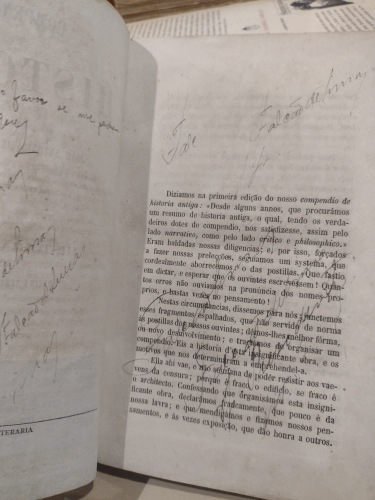 Dizíamos na primeira edição do nosso compendio de
historia antiga: «Desde alguns annos, que procurámos
um resumo de historia antiga, o qual, tendo os verda-
deiros dotes de compendio, nos satisfizesse, assim pelo
lado narrativo, como pelo lado critico e philosophico.»
Eram baldadas nossas diligencias; e, por isso, forçados
a fazer nossas prelecções, seguíamos um systema, que
cordealmente aborrecemos — o das postillas. Que fastio
em dictar, e esperar que os ouvintes escrevessem! Quan-
tos erros não ouviamos na pronuncia dos nomes pro-
prios, e bastas vezes no pensamento!
Nestas circumstancias, dissemos para nós: junctemos
esses fragmentos espalhados, que hão servido de norma
ás postillas dos nossos ouvintes; dêmos-lhes melhor fórma,
ou novo desinvolvimento; e tractemos de organisar um
compendio. Eis a historia d'esta insignificante obra, e os
motivos que nos determinaram a emprehendel-a.
Ella ahi vae, e não se ufana de poder resistir aos vae-
vens da censura; porque é fraco o edificio, se fraco é
o architecto. Confessando que organisámos esta insigni-
ficante obra, declarâmos francamente, que pouco é da
nossa lavra; e que mendigámos e fizemos nossos pen-
samentos, e ás vezes exposição, que dão honra a outros.
TERARIA